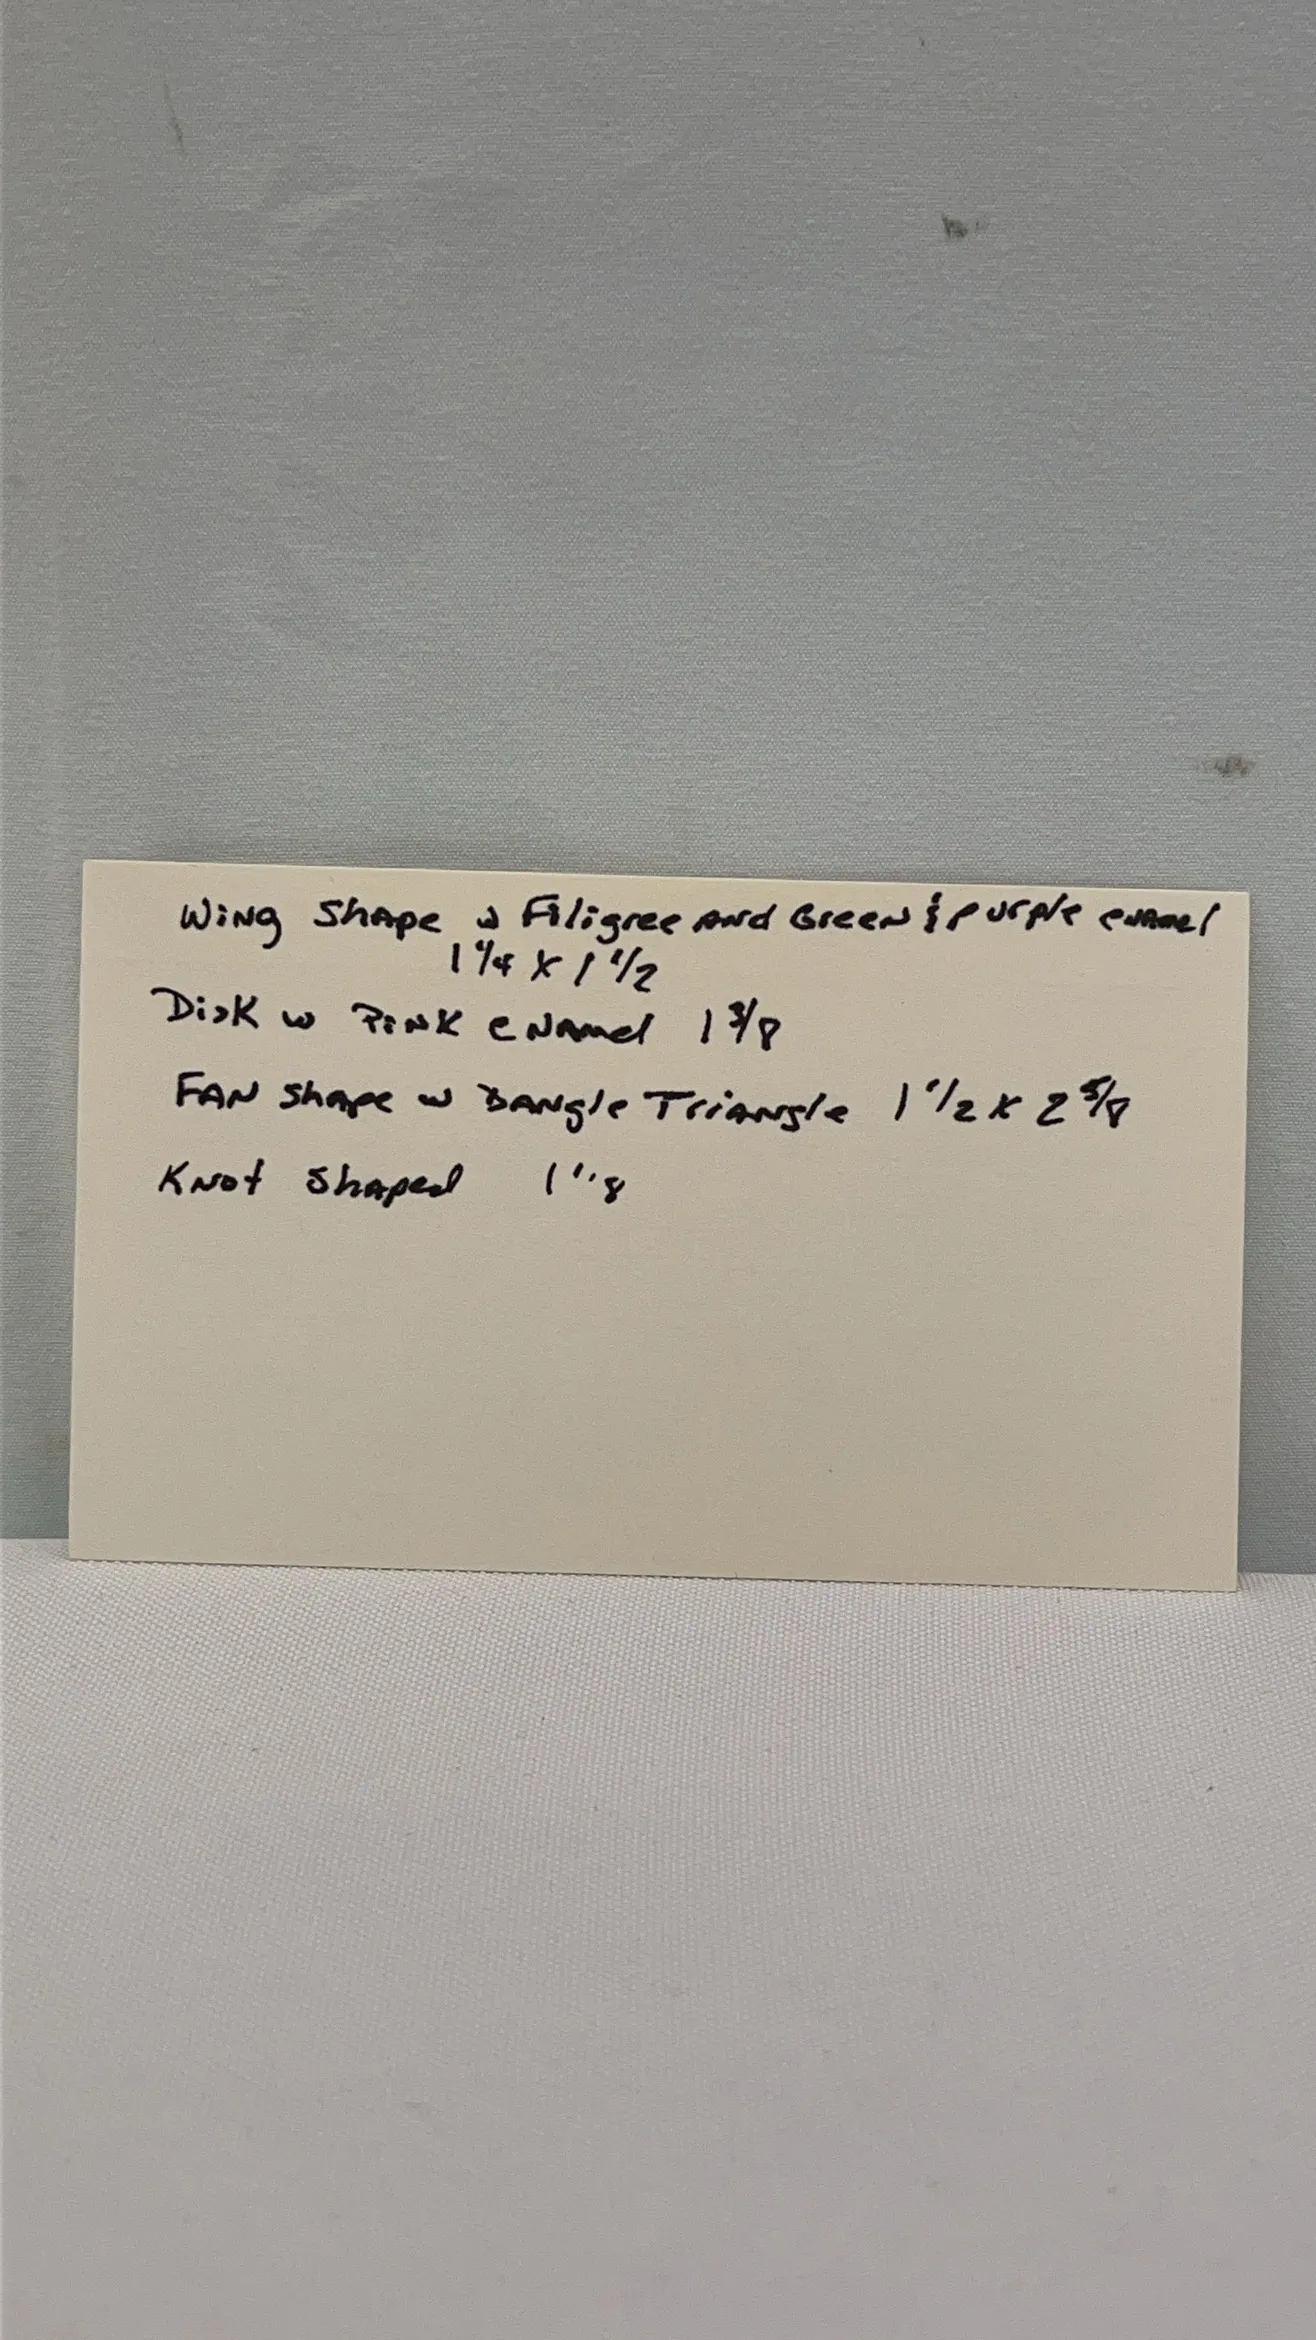 Wing Shape w Filigree and Green & purple enamel
1 1/4 x 1 1/2
Disk w Pink enamel 1 3/8
Fan shape w Dangle Triangle 1 1/2 x 2 5/8
Knot Shaped 1 1/8